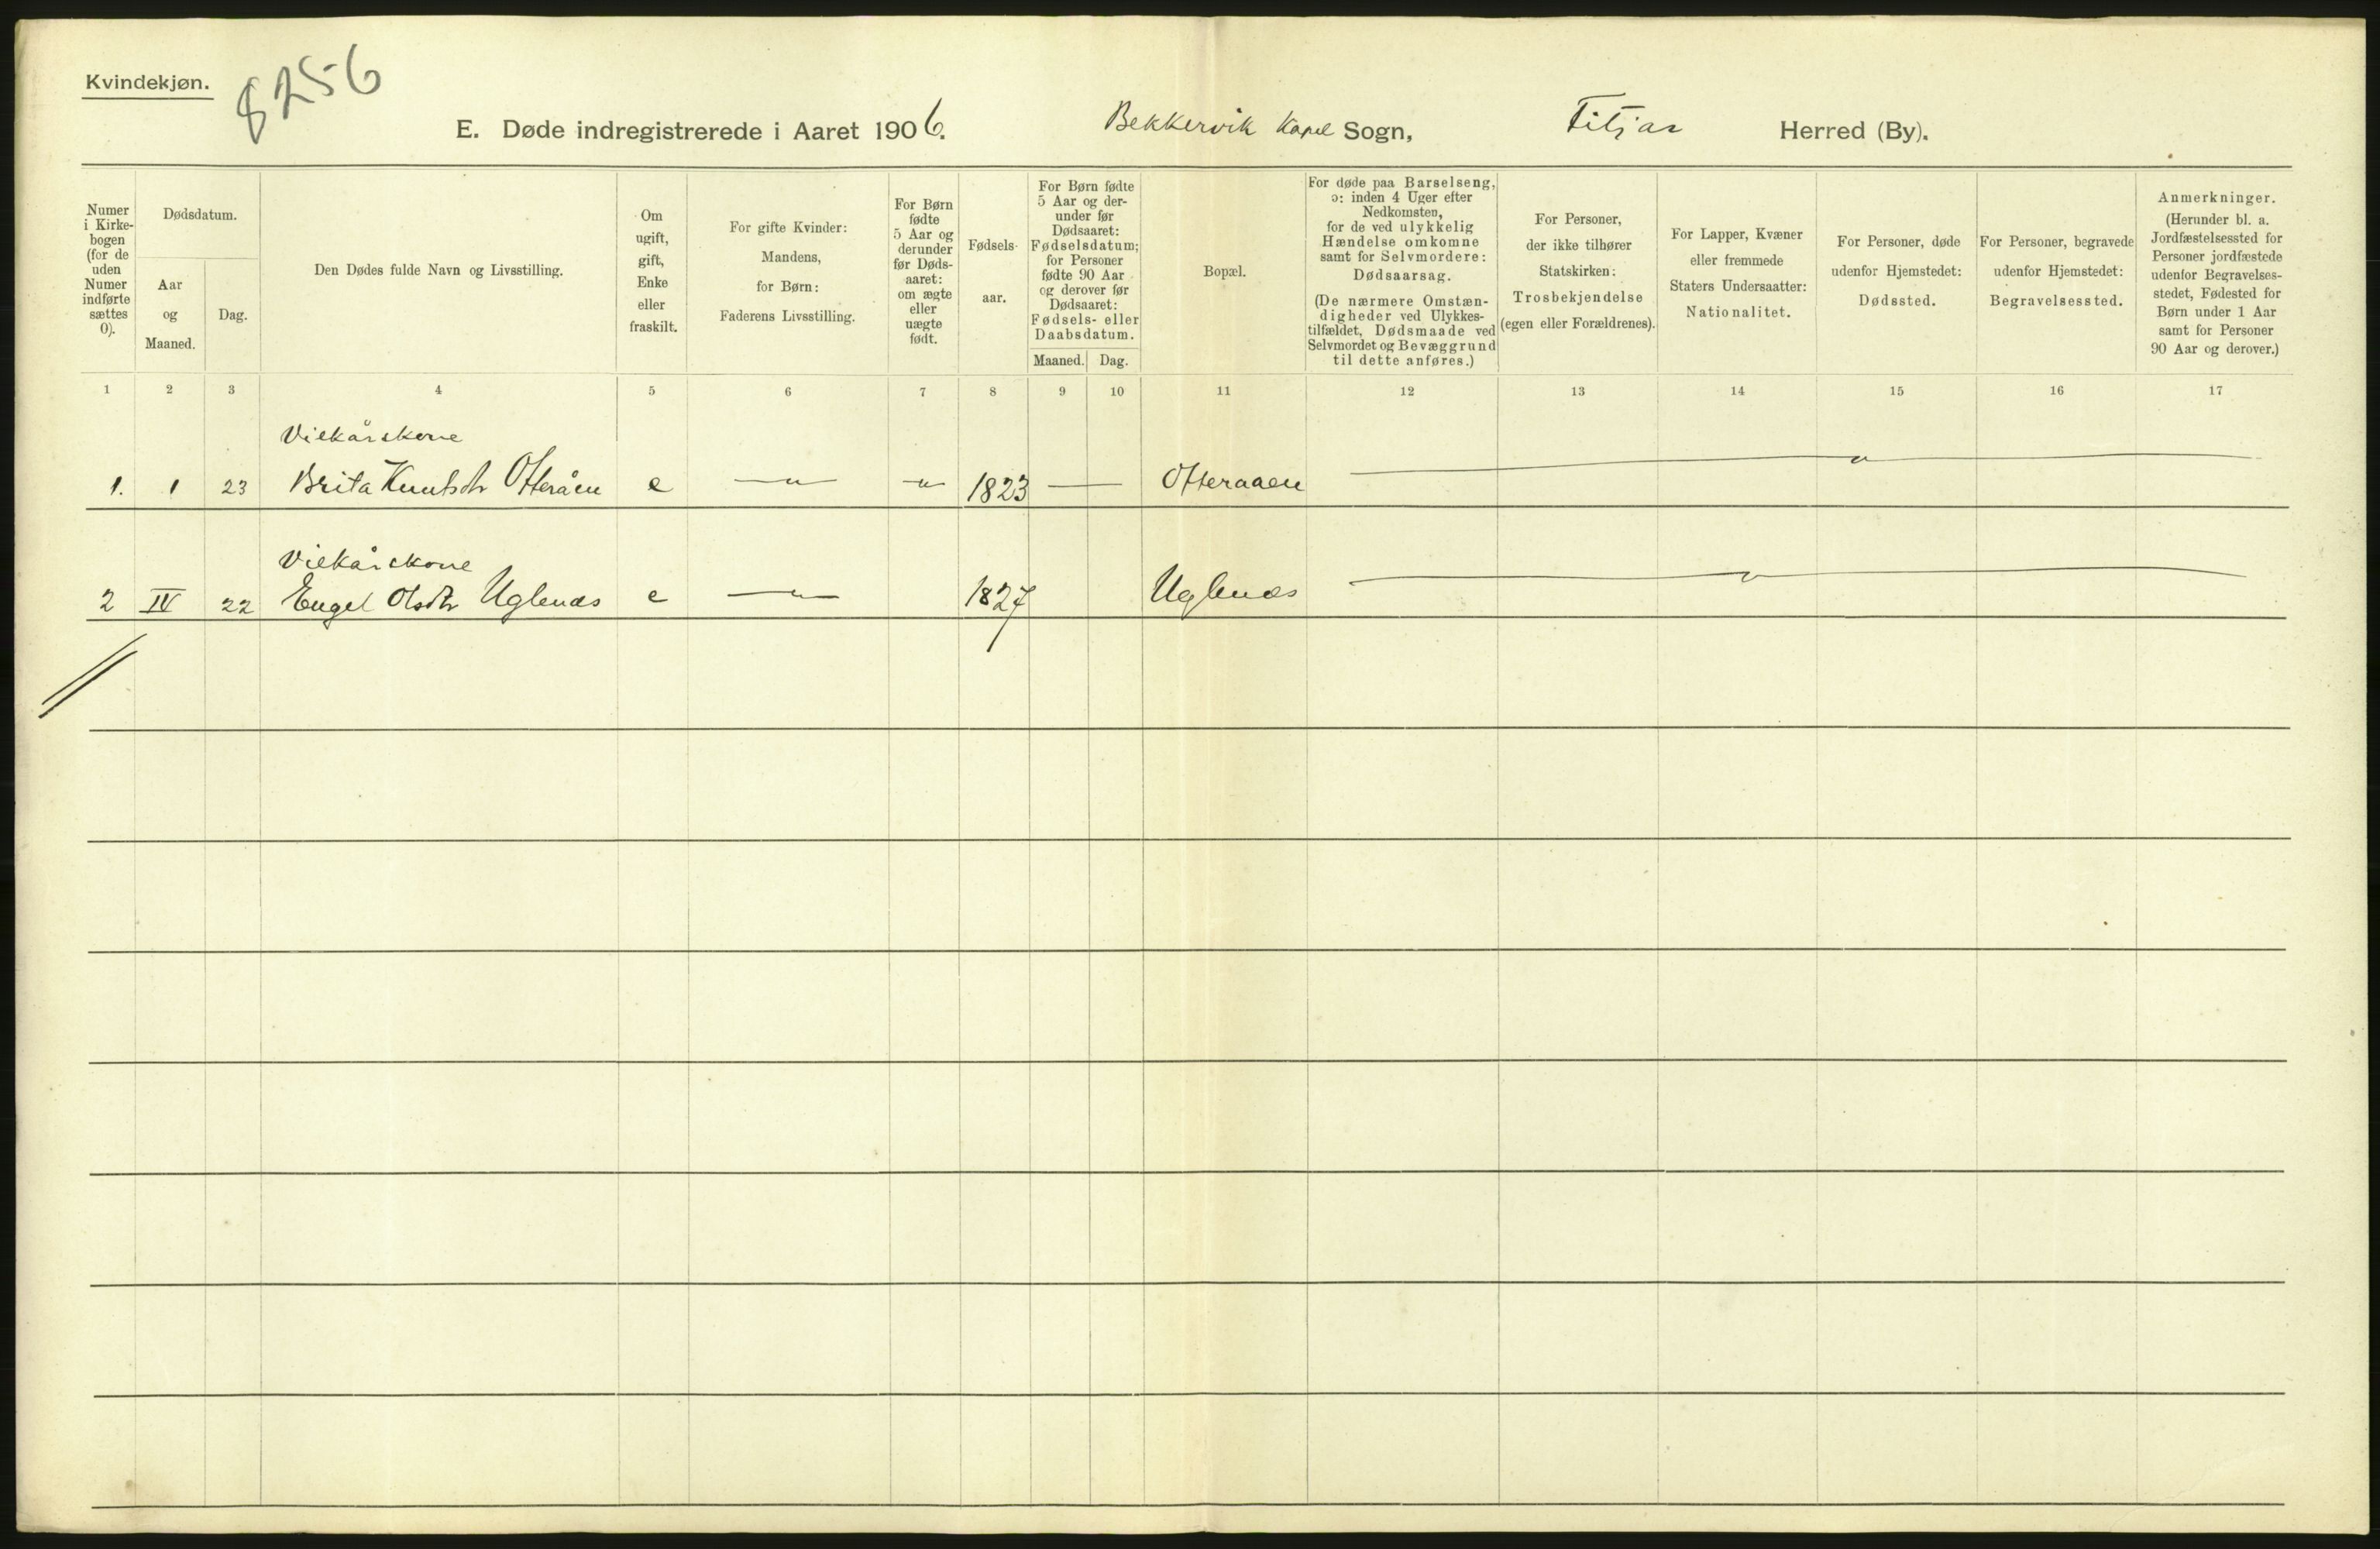 Kvindekjøn.
8256
E. Døde indregistrerede i Aaret 1906. Bekkervik Kapel Sogn, Fitjar Herred (By).
Numer
i Kirke-
bogen
(for de
uden
Numer
indførte
sættes
0).
Dødsdatum.
Aar
og
Maaned.
Dag.
Den Dødes fulde Navn og Livsstilling.
Om
ugift,
gift,
Enke
eller
fraskilt.
For gifte Kvinder:
Mandens,
for Børn:
Faderens Livsstilling.
For Børn
fødte
5 Aar og
derunder
før Døds-
aaret:
om ægte
eller
uægte
født.
Fødsels-
aar.
For Børn fødte
5 Aar og der-
under før
Dødsaaret:
Fødselsdatum;
for Personer
fødte 90 Aar
og derover før
Dødsaaret:
Fødsels- eller
Daabsdatum.
Maaned. Dag.
Bopæl.
For døde paa Barselseng,
ɔ: inden 4 Uger efter
Nedkomsten,
for de ved ulykkelig
Hændelse omkomne
samt for Selvmordere:
Dødsaarsag.
(De nærmere Omstæn-
digheder ved Ulykkes-
tilfældet, Dødsmaade ved
Selvmordet og Bevæggrund
til dette anføres.)
For Personer,
der ikke tilhører
Statskirken:
Trosbekjendelse
(egen eller Forældrenes).
For Lapper, Kvæner
eller fremmede
Staters Undersaatter:
Nationalitet.
For Personer, døde
udenfor Hjemstedet:
Dødssted.
For Personer, begravede
udenfor Hjemstedet:
Begravelsessted.
Anmerkninger.
(Herunder bl. a.
Jordfæstelsessted for
Personer jordfæstede
udenfor Begravelses-
stedet, Fødested for
Børn under 1 Aar
samt for Personer
90 Aar og derover.)
1 2 3 4 5 6 7 8 9 10 11 12 13 14 15 16 17
Vilkårskone
1. 1 23 Brita Knutsdtr Ofteråen e —"— —"— 1823 — Ofteraaen —"—
Vilkårskone
2 IV 22 Engel Olsdtr Uglenæs e —"— 1827 Uglenæs —"—